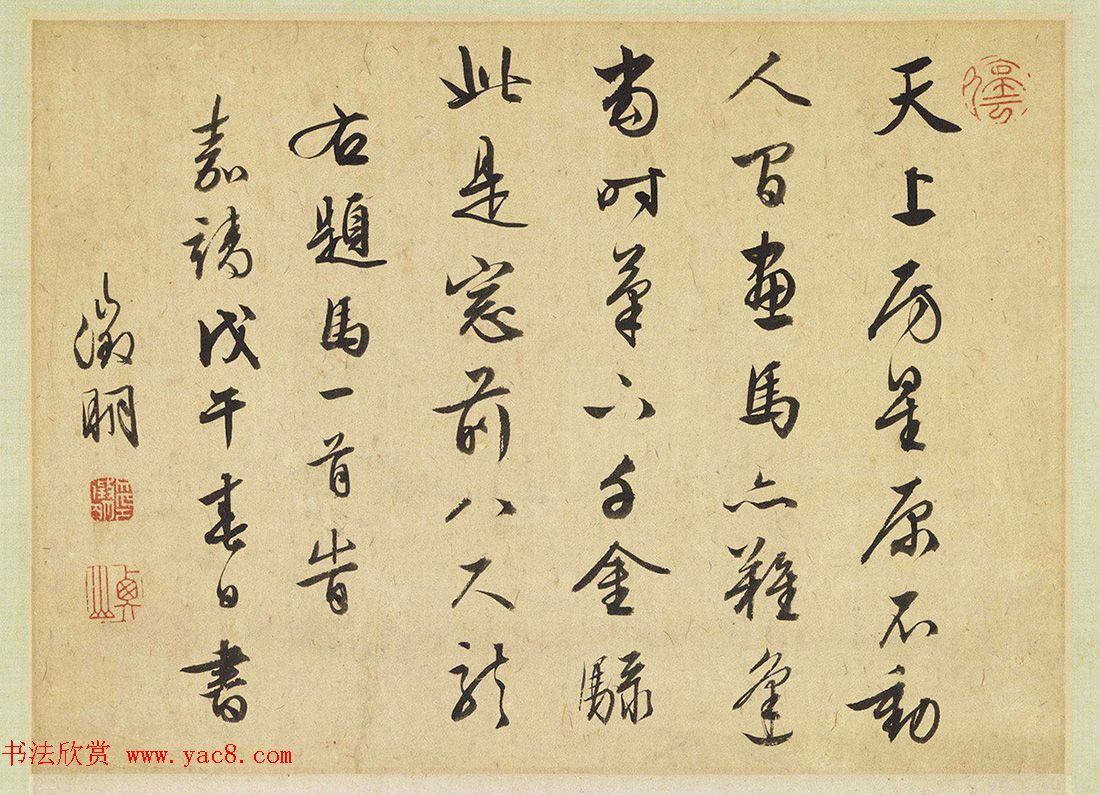 停雲
天上房星原不動
人間畫馬亦難逢
當時筆下千金騄
此是窓前八尺龍
右題馬一首旹
嘉靖戊午春日書
徵明
书法欣赏 www.yac8.com